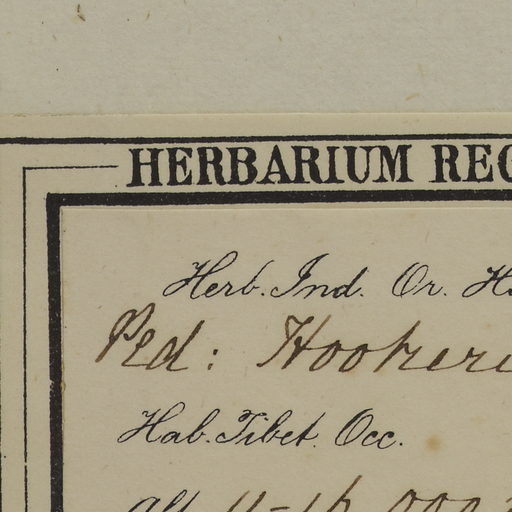 HERBARIUM REG
Herb. Ind. Or. H
Ped: Hookeri
Hab. Tibet. Occ.
alt 11-16,000